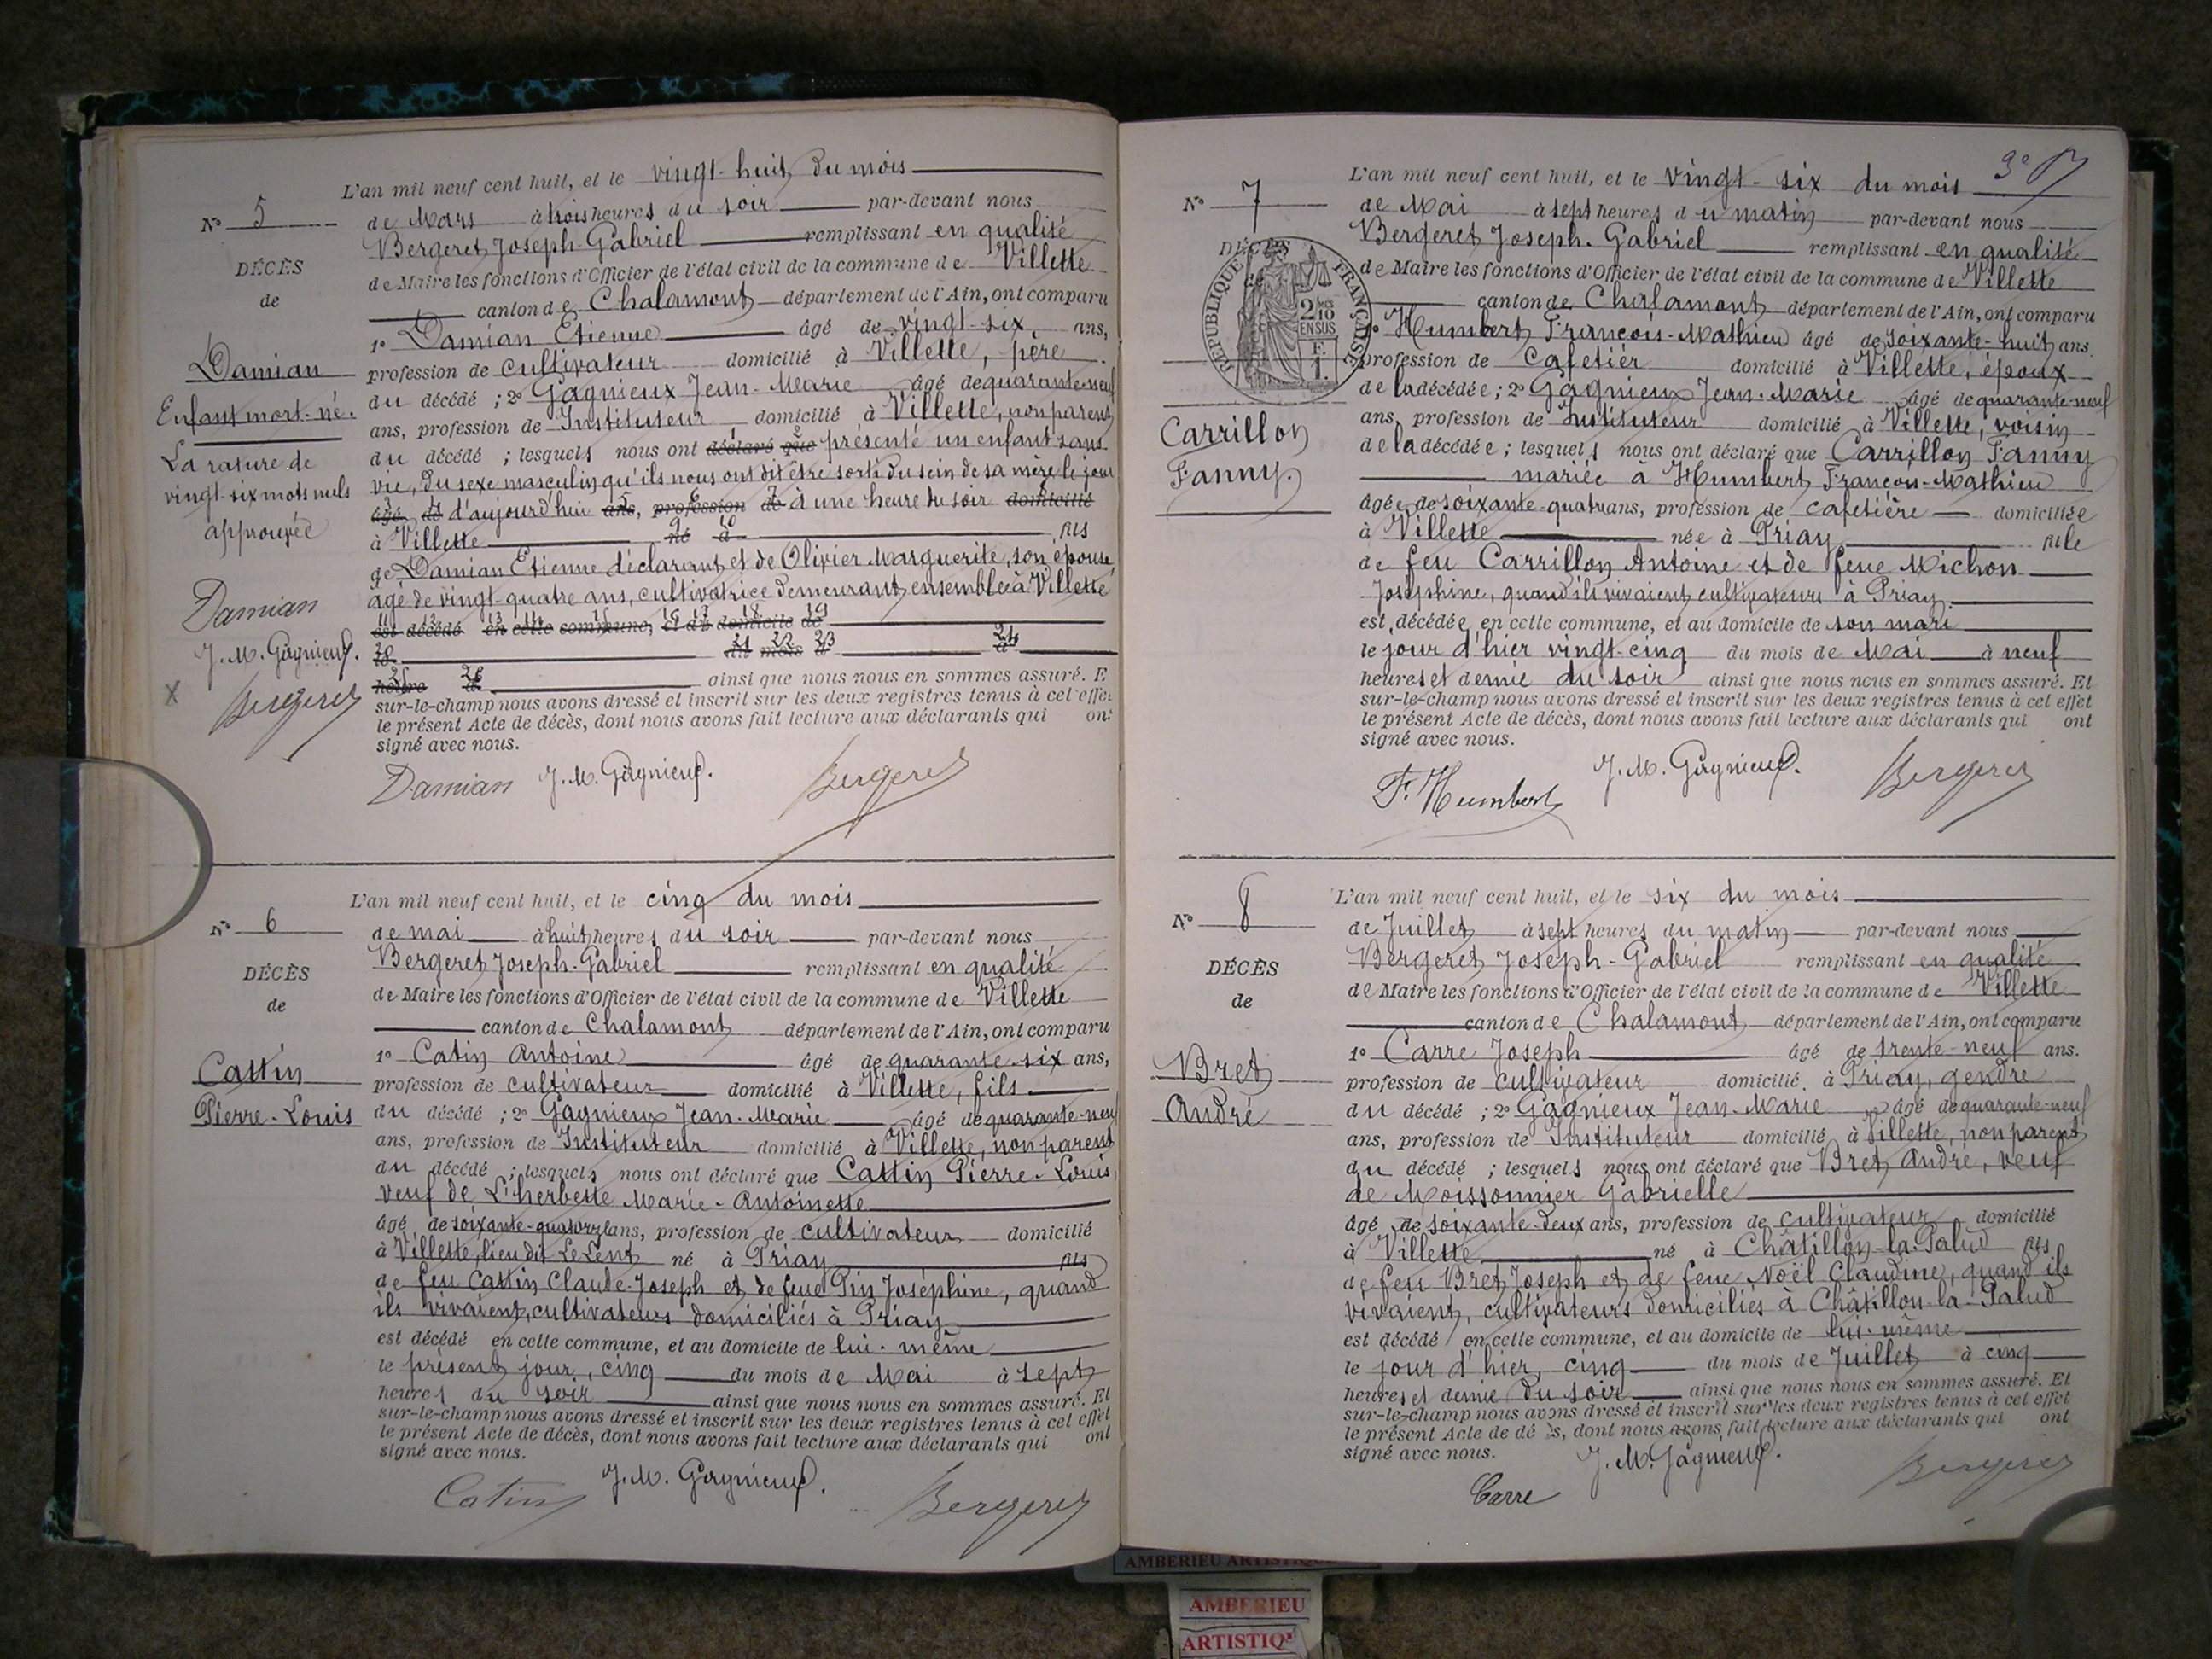 L'an mil neuf cent huit, et le vingt-huit du mois
N° 5
de Mars à trois heures du soir par-devant nous
Bergeret Joseph-Gabriel remplissant en qualité
DÉCÈS
de Maire les fonctions d'Officier de l'état civil de la commune de Villette
de
canton de Chalamont département de l'Ain, ont comparu
1° Damian Etienne âgé de vingt-six ans,
Damian
profession de cultivateur domicilié à Villette, père
Enfant mort-né.
du décédé ; 2° Gagnieux Jean-Marie âgé de quarante-neuf
ans, profession de Instituteur domicilié à Villette, non parent
La rature de
du décédé ; lesquels nous ont déclaré que présenté un enfant sans
vingt-six mots nuls
vie, du sexe masculin qu'ils nous ont dit être sorti du sein de sa mère le jour
approuvée
âgé de d'aujourd'hui ans, profession de à une heure du soir domicilié
à Villette né à fils
de Damian Etienne déclarant et de Olivier Marguerite, son épouse,
âgé de vingt-quatre ans, cultivatrice demeurant ensemble à Villette
Damian
est décédé en cette commune, et au domicile de
J. M. Gagnieux.
le du mois de à
Bergeret
heure de ainsi que nous nous en sommes assuré. E
X
sur-le-champ nous avons dressé et inscrit sur les deux registres tenus à cet effet
le présent Acte de décès, dont nous avons fait lecture aux déclarants qui ont
signé avec nous.
Damian J. M. Gagnieux. Bergeret
L'an mil neuf cent huit, et le cinq du mois
N° 6
de mai à huit heures du soir par-devant nous
Bergeret Joseph-Gabriel remplissant en qualité
DÉCÈS
de Maire les fonctions d'Officier de l'état civil de la commune de Villette
de
canton de Chalamont département de l'Ain, ont comparu
1° Catin Antoine âgé de quarante-six ans,
Cattin
profession de cultivateur domicilié à Villette, fils
Pierre-Louis
du décédé ; 2° Gagnieux Jean-Marie âgé de quarante-neuf
ans, profession de Instituteur domicilié à Villette, non parent
du décédé ; lesquels nous ont déclaré que Cattin Pierre-Louis,
veuf de L'herbette Marie-Antoinette
âgé de soixante-quatorze ans, profession de cultivateur domicilié
à Villette, lieu dit Le Lent né à Priay fils
de feu Cattin Claude-Joseph et de feue Pin Joséphine, quand
ils vivaient, cultivateurs domiciliés à Priay
est décédé en cette commune, et au domicile de lui-même
le présent jour, cinq du mois de Mai à sept
heures du soir ainsi que nous nous en sommes assuré. Et
sur-le-champ nous avons dressé et inscrit sur les deux registres tenus à cet effet
le présent Acte de décès, dont nous avons fait lecture aux déclarants qui ont
signé avec nous.
Catin J. M. Gagnieux. Bergeret
3e
L'an mil neuf cent huit, et le vingt-six du mois
N° 7
de Mai à sept heures du matin par-devant nous
Bergeret Joseph-Gabriel remplissant en qualité
DÉCÈS
de Maire les fonctions d'Officier de l'état civil de la commune de Villette
RÉPUBLIQUE FRANÇAISE
2/10
EN SUS
F.
1.
canton de Chalamont département de l'Ain, ont comparu
1° Humbert François-Mathieu âgé de soixante-huit ans.
profession de cafetier domicilié à Villette, époux
de la décédée ; 2° Gagnieux Jean-Marie âgé de quarante-neuf
ans, profession de Instituteur domicilié à Villette, voisin
Carrillon
de la décédée ; lesquels nous ont déclaré que Carrillon Fanny
Fanny.
mariée à Humbert François-Mathieu
âgée de soixante-quatre ans, profession de cafetière domiciliée
à Villette née à Priay fille
de feu Carrillon Antoine et de feue Michon
Joséphine, quand ils vivaient cultivateurs à Priay.
est décédée en cette commune, et au domicile de son mari
le jour d'hier vingt-cinq du mois de Mai à neuf
heures et demie du soir ainsi que nous nous en sommes assuré. Et
sur-le-champ nous avons dressé et inscrit sur les deux registres tenus à cet effet
le présent Acte de décès, dont nous avons fait lecture aux déclarants qui ont
signé avec nous.
F. Humbert J. M. Gagnieux. Bergeret
L'an mil neuf cent huit, et le six du mois
N° 8
de Juillet à sept heures du matin par-devant nous
Bergeret Joseph-Gabriel remplissant en qualité
DÉCÈS
de Maire les fonctions d'Officier de l'état civil de la commune de Villette
de
canton de Chalamont département de l'Ain, ont comparu
1° Carre Joseph âgé de trente-neuf ans.
Bret
profession de cultivateur domicilié à Priay, gendre
André
du décédé ; 2° Gagnieux Jean-Marie âgé de quarante-neuf
ans, profession de Instituteur domicilié à Villette, non parent
du décédé ; lesquels nous ont déclaré que Bret André, veuf
de Moissonnier Gabrielle
âgé de soixante-deux ans, profession de cultivateur domicilié
à Villette né à Châtillon-la-Palud fils
de feu Bret Joseph et de feue Noël Claudine, quand ils
vivaient, cultivateurs domiciliés à Châtillon-la-Palud
est décédé en cette commune, et au domicile de lui-même
le jour d'hier, cinq du mois de Juillet à cinq
heures et demie du soir ainsi que nous nous en sommes assuré. Et
sur-le-champ nous avons dressé et inscrit sur les deux registres tenus à cet effet
le présent Acte de décès, dont nous avons fait lecture aux déclarants qui ont
signé avec nous.
Carre J. M. Gagnieux. Bergeret
AMBERIEU ARTISTIQUE
AMBERIEU
ARTISTIQ